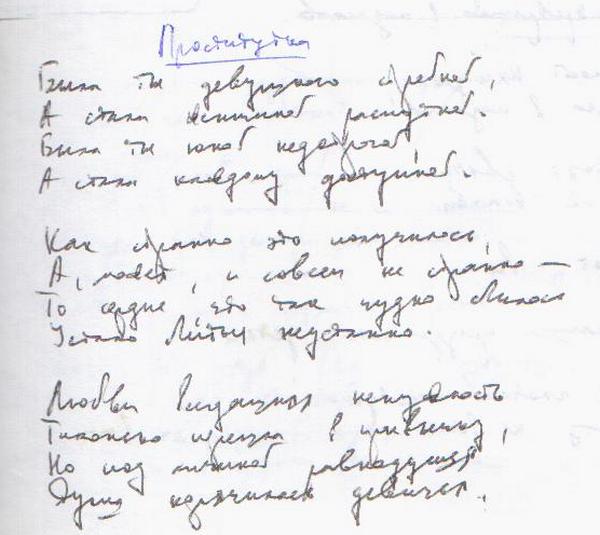 Проститутка
Была ты девушкою стройной,
А стала женщиной распутной.
Была ты юной недотрогой,
А стала каждому доступной.
Как странно это получилось,
А, может, и совсем не странно —
То сердце, что так чудно билось
Устало биться неустанно.
Любви ненужность
Тихонько в привычку,
Но под личиной равнодушья
Душа корячилась девичья.